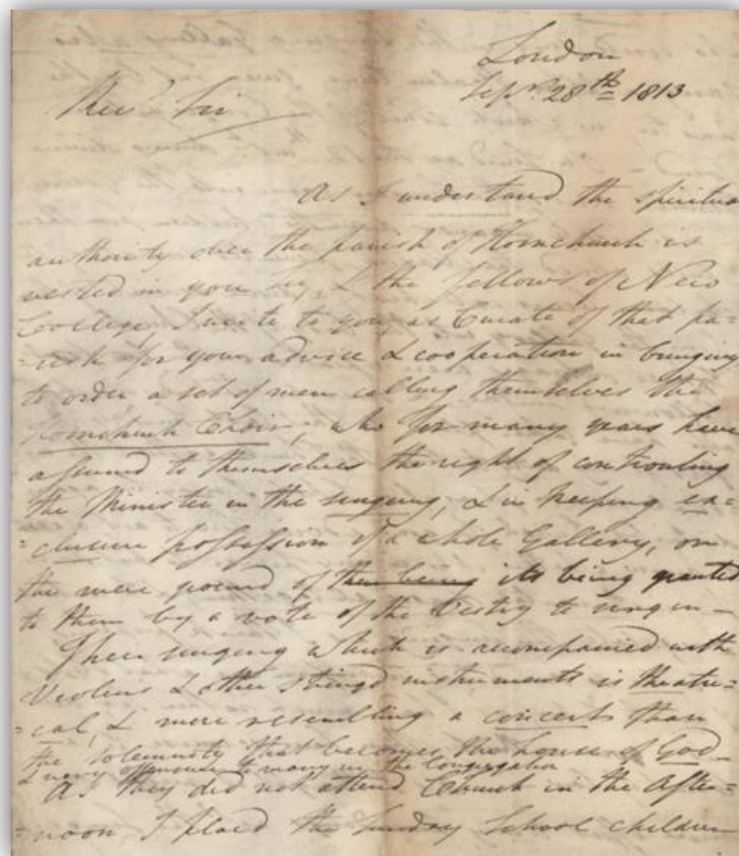 London
Sepr. 28th 1813
Revd Sir
As I understand the spiritual
authority over the parish of Hornchurch is
vested in you Sir, & the fellows of New
College, I write to you as Curate of that pa-
=rish for your advice & cooperation in bringing
to order a set of men calling themselves the
Hornchurch Choir, who for many years have
assumed to themselves the right of controuling
the Minister in the singing, & in keeping ex=
=clusive possession of a whole Gallery, on
the mere ground of their being its being granted
to them by a vote of the Vestry to sing in -
Their singing which is accompanied with
Violins & other stringd instruments is theatri=
=cal, & more resembling a concert than
the solemnity that becomes the house of God
& very offensive to many in the Congregation
As they did not attend Church in the After=
=noon I placed the Sunday School children